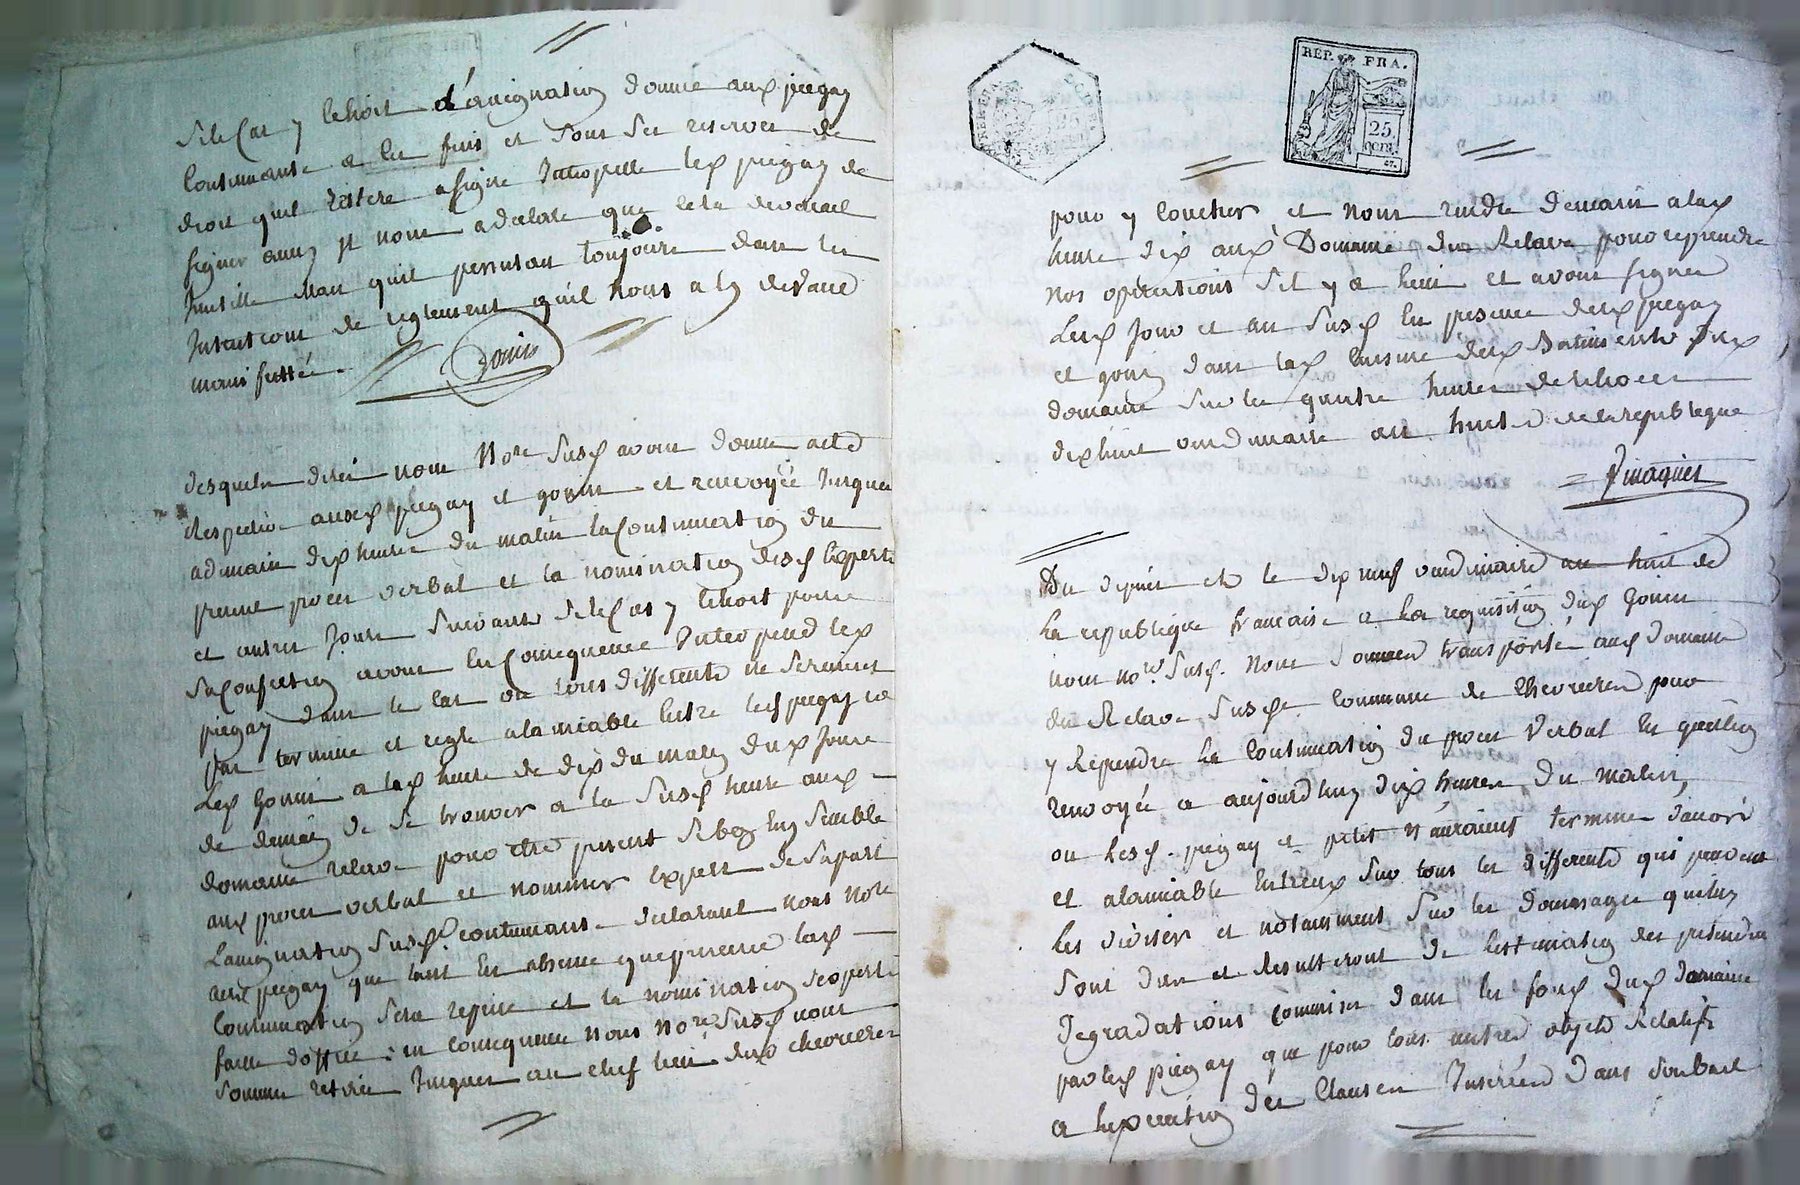 Sile Cas y Echoit d'assignation donnée aud. piegay
Contumante a les fins et sous les reserves de
droit quil Reitere a signe Interpelle led. piegay de
signer aussy et nous a declaré que cela devenait
Inutille mais quil persistait toujours dans les
Intentions de reglement quil nous a cy devant
manifesté.
Gonin
desquels dires nous Nore. Susd. avons donné acte
Respective auxd. piegay et gonin et renvoyée Jusques
a demain dix heures du matin la Continuation du
present proces verbal et la nomination desd. Experts
et autres Jours Suivants Sile Cas y Echoit pour
Sa Confection avons En Consequence Interpellé led.
piegay dans le Cas ou tous differents ne seraient
pas terminé et reglé alamiable Entre led. piegay et
Led. Gonin a lad. heure de dix du matin dud. Jour
de demain de se trouver a la Susd. heure aud.
domaine relave pour etre present si bon luy semble
aud. proces verbal et nommer Expert de sa part
Lassignation Susd. contumante declarant nous Nore
aud. piegay que tant En absence que presence lad.
Continuation sera reprise et la nomination dexperts
faitte doffice. en consequence nous Nore. Susd. nous
sommes retirée Jusques au chef lieu dud. chevrieres
REP. FRA.
25
CENT.
pour y Coucher et nous rendre demain a lad.
heure dix aud. Domaine du Relave pour reprendre
nos operations Sil y a lieu et avons signé
Lesd. Jour et an Susd. En presence desd. piegay
et gonin dans lad. Cuisine desd. Batiments dud.
domaine sur les quatre heures de relevee
dix huit vendemiaire an huit de la republique
Du depuis et le dix neuf vendimiaire an huit de
La republique francaise a La requisition dud. Gonin
nous Nore. Susd. Nous Sommes transporté aud. domaine
du Relave Susd. Commune de Chevrieres pour
y Reprendre La Continuation du proces Verbal En question
renvoyée a aujourdhuy dix heures du matin,
ou Lesd. piegay et petit n'auroient terminé daccord
et alamiable Entreux Sur tous les differents qui peuvent
Les diviser et notamment Sur les dommages quil luy
Sont dus et Resulteront de Lestimation des pretendues
Degradations Commises dans les fonds dud. domaine
par led. piegay que pour tous autres objets Relatifs
a Lexecution des Clauses Inserées dans Son bail